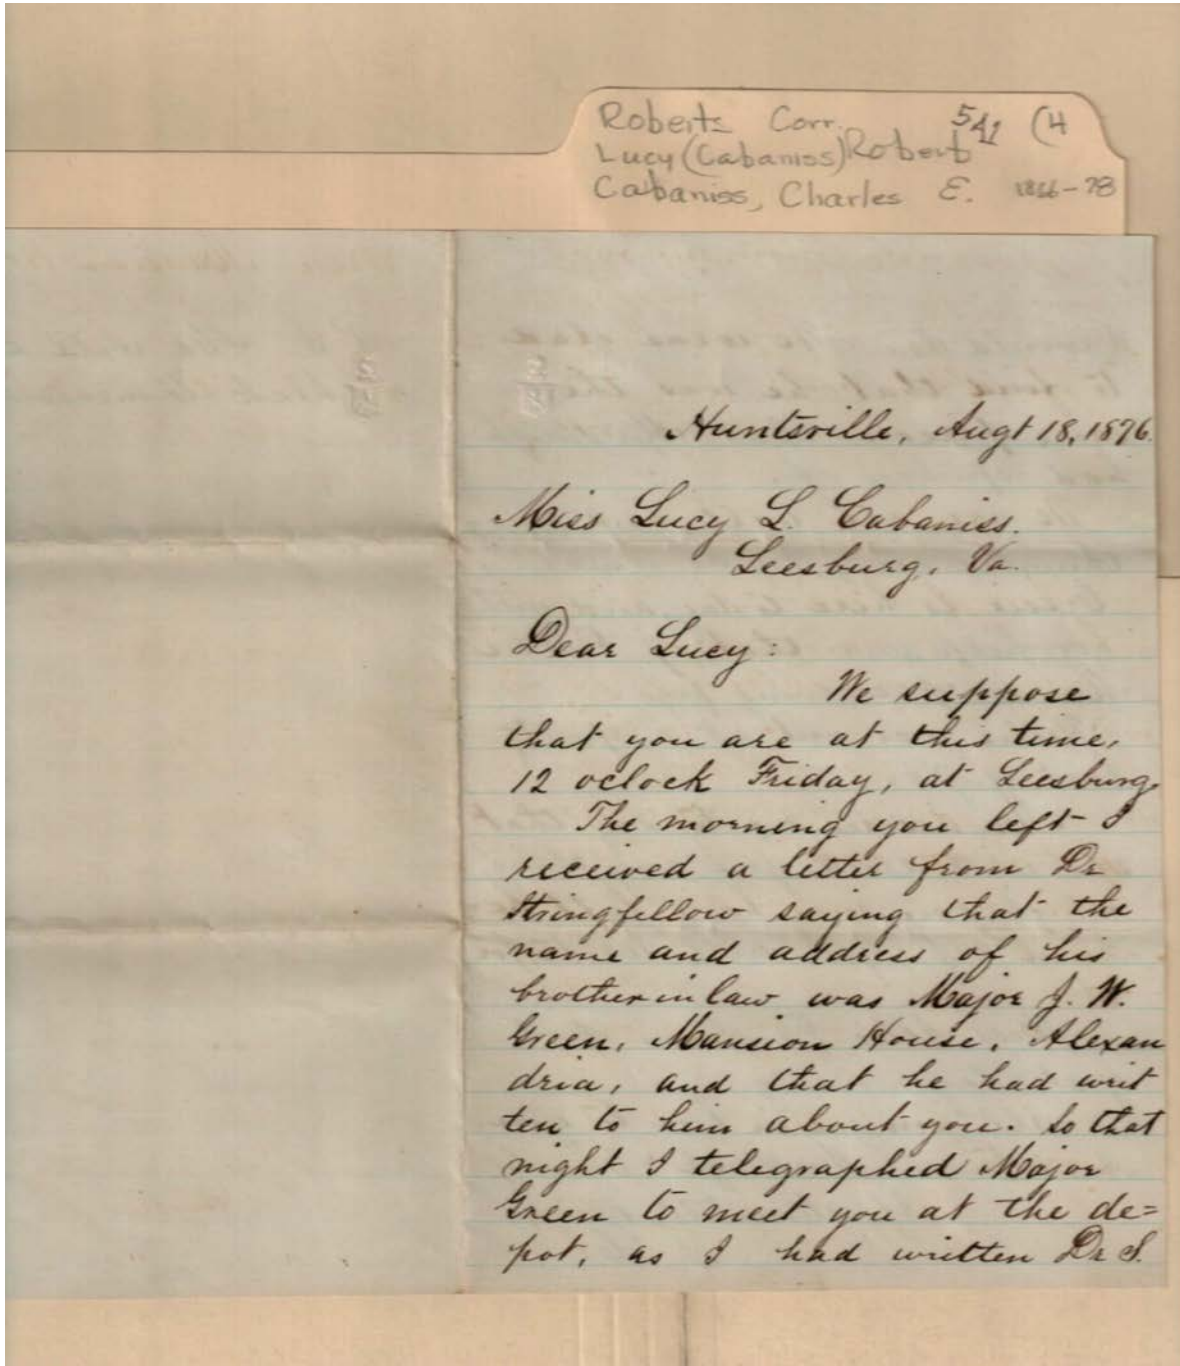 Roberts Corr. 541 (4
Lucy (Cabaniss) Robert
Cabaniss, Charles E. 1866-78
Huntsville, Augt 18, 1876.
Miss Lucy L. Cabaniss.
Leesburg, Va.
Dear Lucy:
We suppose
that you are at this time,
12 oclock Friday, at Leesburg.
The morning you left I
received a letter from Dr
Stringfellow saying that the
name and address of his
brother in law was Major J. W.
Green, Mansion House, Alexan
dria, and that he had writ
ten to him about you. So that
night I telegraphed Major
Green to meet you at the de=
pot, as I had written Dr S.